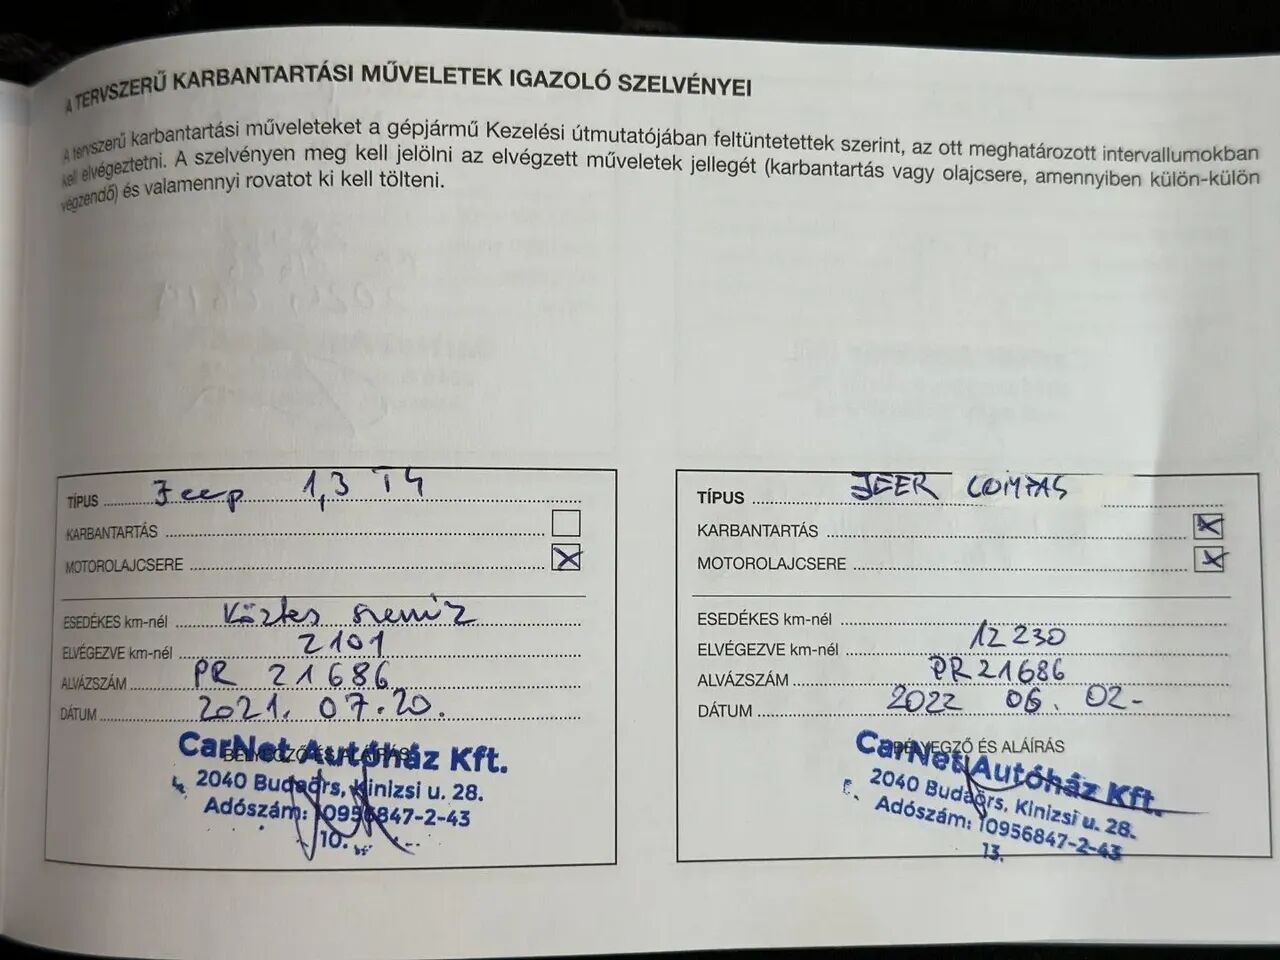 A TERVSZERŰ KARBANTARTÁSI MŰVELETEK IGAZOLÓ SZELVÉNYEI
A tervszerű karbantartási műveleteket a gépjármű Kezelési útmutatójában feltüntetettek szerint, az ott meghatározott intervallumokban
kell elvégeztetni. A szelvényen meg kell jelölni az elvégzett műveletek jellegét (karbantartás vagy olajcsere, amennyiben külön-külön
végzendő) és valamennyi rovatot ki kell tölteni.
TÍPUS Jeep 1,3 T4
KARBANTARTÁS
MOTOROLAJCSERE X
ESEDÉKES km-nél Köztes szerviz
ELVÉGEZVE km-nél 2101
ALVÁZSZÁM PR 21686
DÁTUM 2021. 07.20.
BÉLYEGZŐ ÉS ALÁÍRÁS
CarNet Autóház Kft.
2040 Budaörs, Kinizsi u. 28.
Adószám: 10956847-2-43
10.
TÍPUS JEEP COMPAS
KARBANTARTÁS X
MOTOROLAJCSERE X
ESEDÉKES km-nél
ELVÉGEZVE km-nél 12 230
ALVÁZSZÁM PR21686
DÁTUM 2022 06. 02-
BÉLYEGZŐ ÉS ALÁÍRÁS
CarNet Autóház Kft.
2040 Budaörs, Kinizsi u. 28.
Adószám: 10956847-2-43
13.